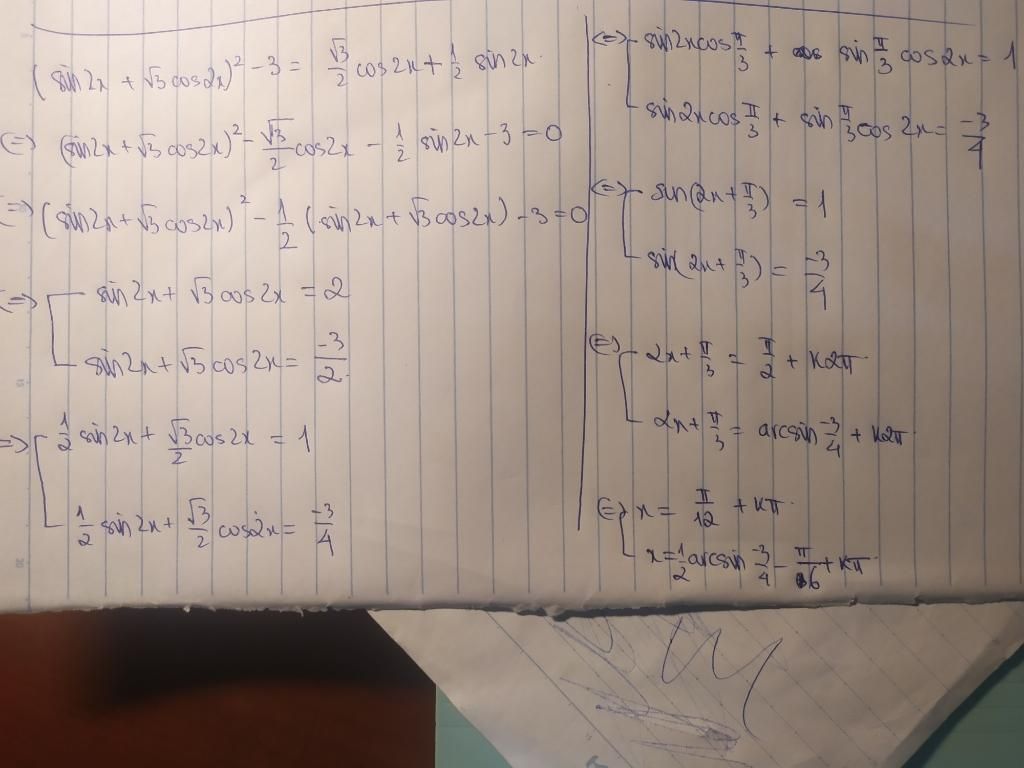 (sin2x + √3 cos2x)² - 3 = √3/2 cos2x + 1/2 sin2x.
(=) (sin2x + √3 cos2x)² - √3/2 cos2x - 1/2 sin2x - 3 = 0
(=) (sin2x + √3 cos2x)² - 1/2 (sin2x + √3 cos2x) - 3 = 0
(=) [ sin2x + √3 cos2x = 2
sin2x + √3 cos2x = -3/2
=) [ 1/2 sin2x + √3/2 cos2x = 1
1/2 sin2x + √3/2 cos2x = -3/4
(=) [ sin2x cos π/3 + sin π/3 cos2x = 1
sin2x cos π/3 + sin π/3 cos2x = -3/4
(=) [ sin(2x + π/3) = 1
sin(2x + π/3) = -3/4
(=) [ 2x + π/3 = π/2 + k2π
2x + π/3 = arcsin -3/4 + k2π
(=) [ x = π/12 + kπ
x = 1/2 arcsin -3/4 - π/6 + kπ